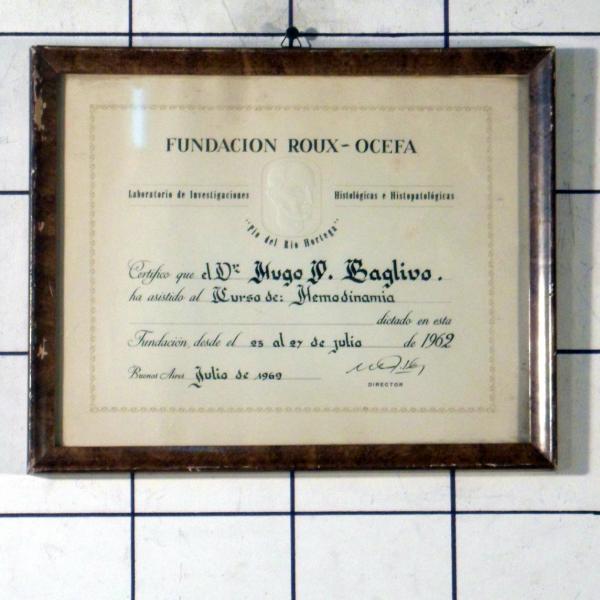 FUNDACION ROUX-OCEFA
Laboratorio de Investigaciones Histológicas e Histopatológicas
"Pio del Rio Hortega"
Certifico que el Dr. Hugo P. Baglivo.
ha asistido al Curso de: Hemodinamia
dictado en esta
Fundación, desde el 25 al 27 de julio de 1962
Buenos Aires Julio de 1962
DIRECTOR